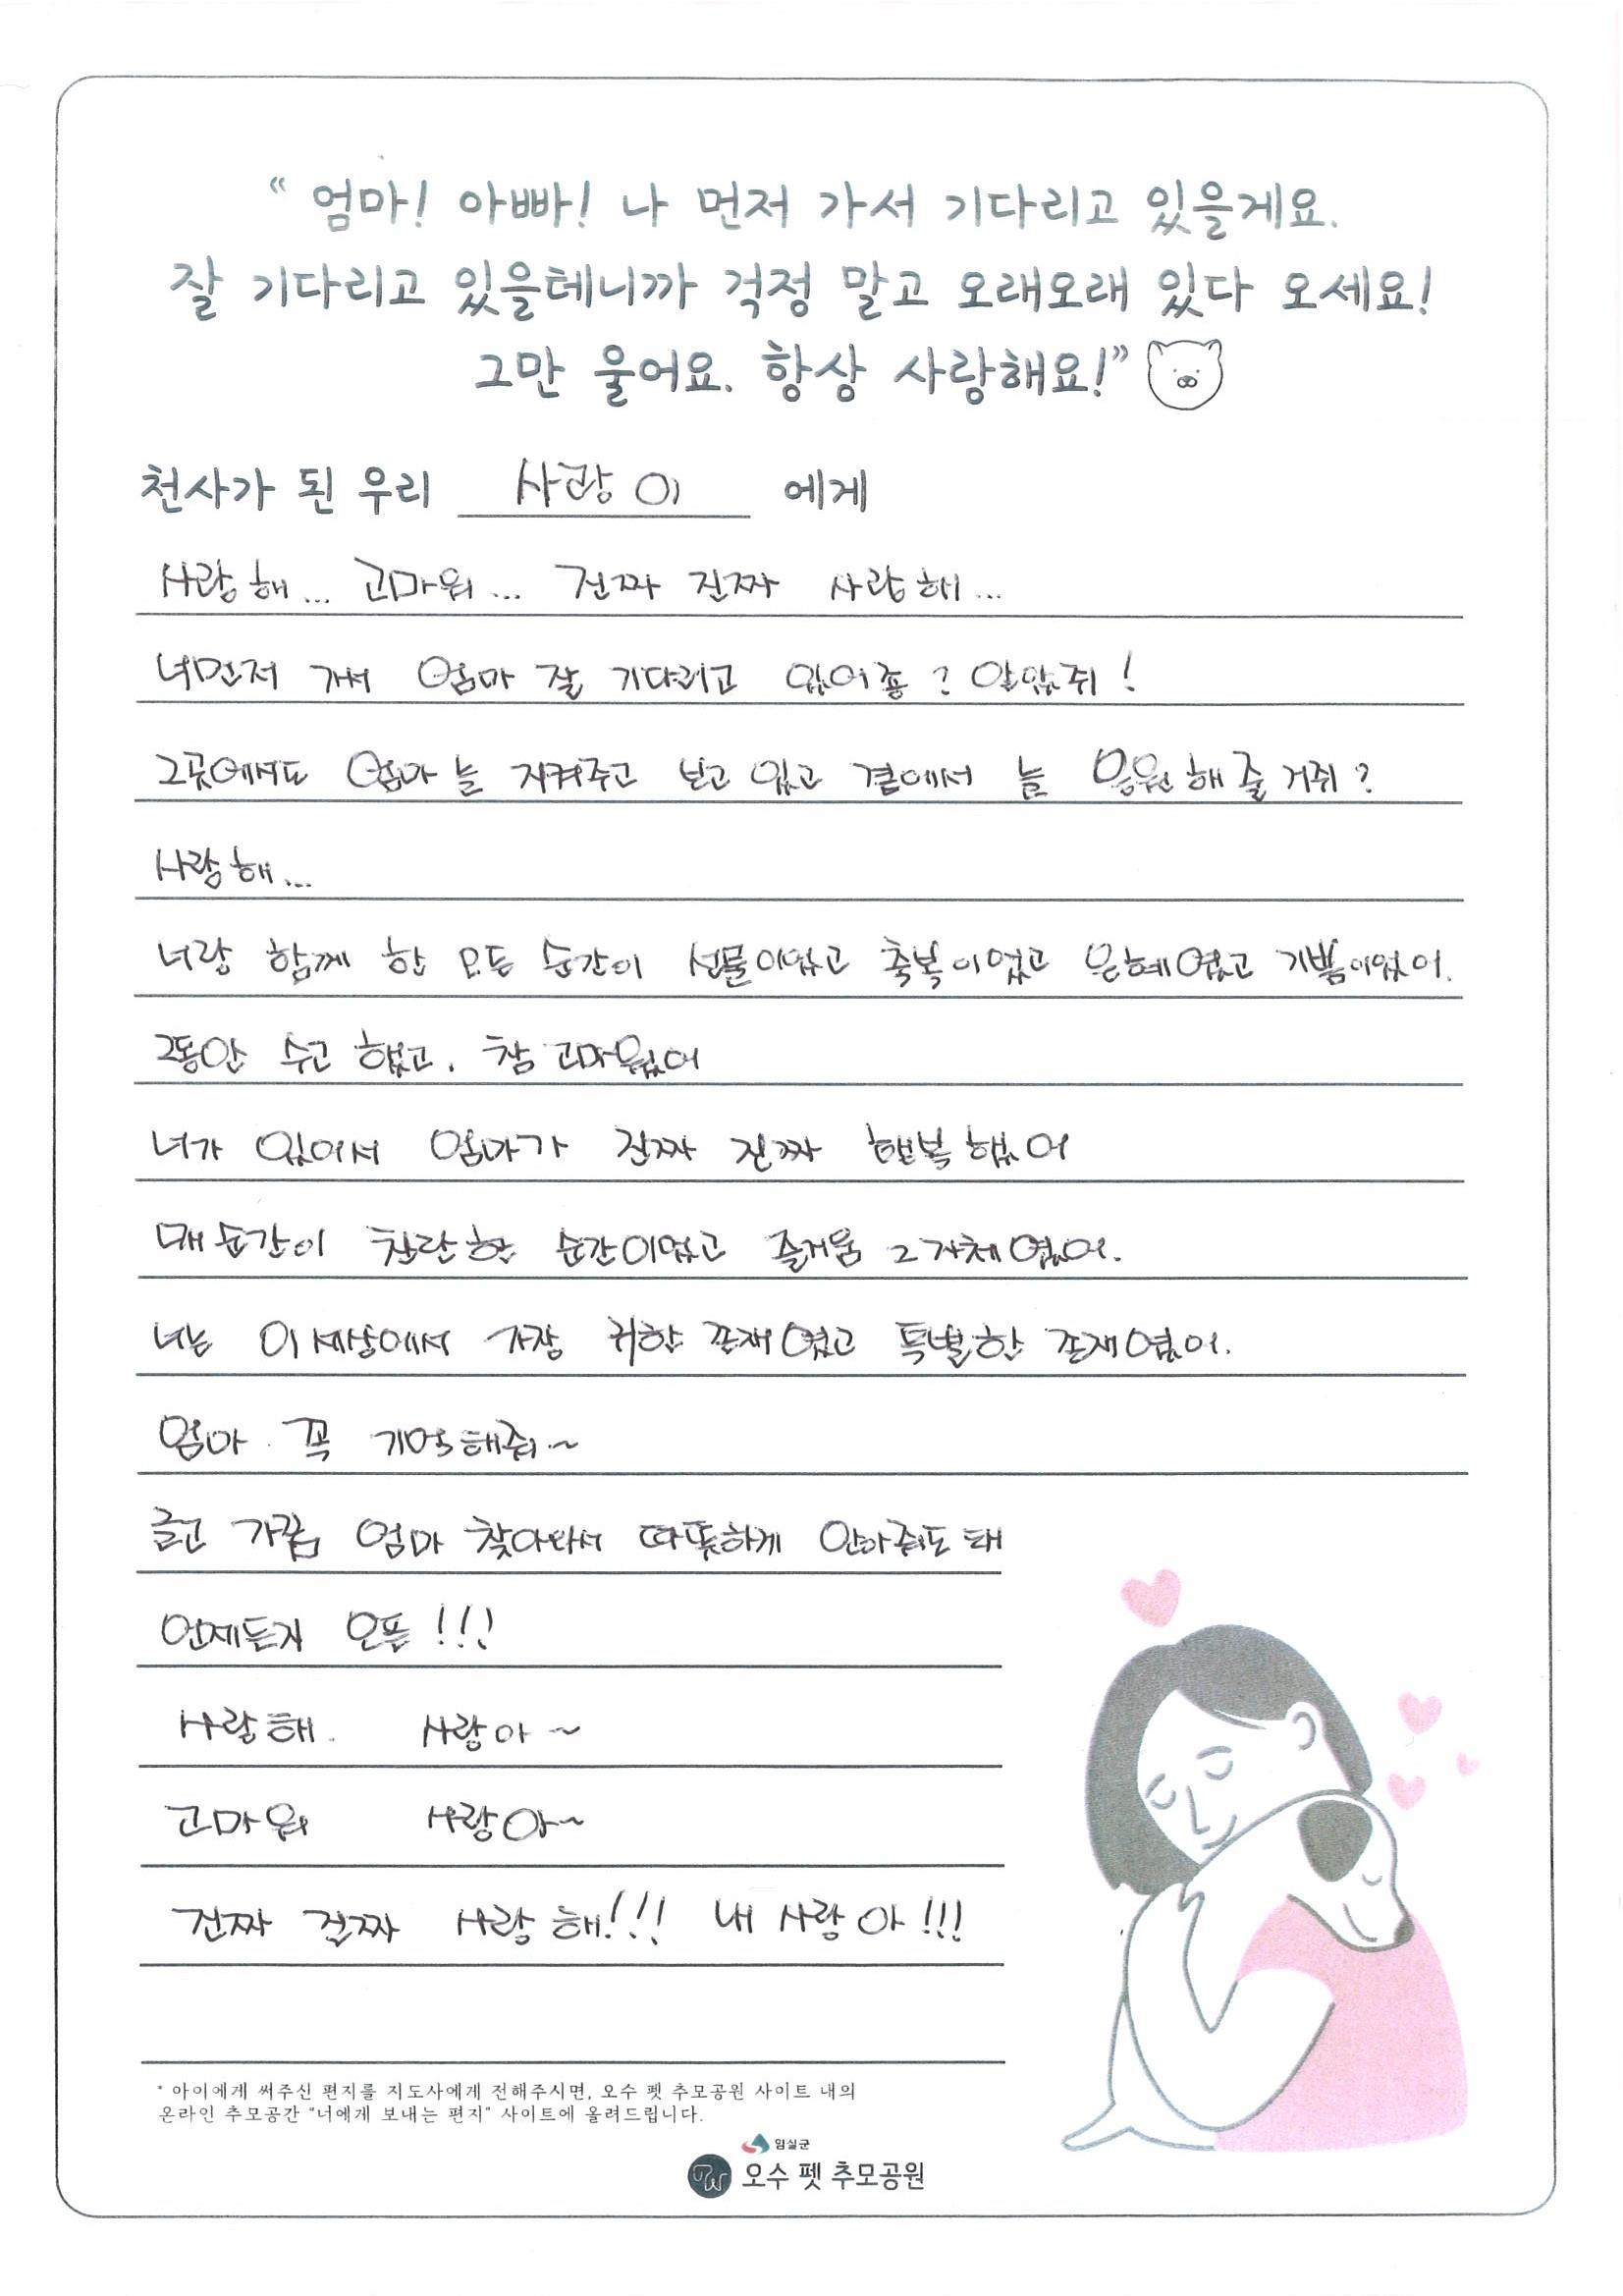 “ 엄마! 아빠! 나 먼저 가서 기다리고 있을게요.
잘 기다리고 있을테니까 걱정 말고 오래오래 있다 오세요!
그만 울어요. 항상 사랑해요!”
천사가 된 우리 사랑이 에게
사랑해... 고마워... 진짜 진짜 사랑해...
너먼저 가서 엄마 잘 기다리고 있어죵? 알았쥐!
그곳에서도 엄마 늘 지켜주고 보고 있고 곁에서 늘 응원해 줄 거쥐?
사랑해...
너랑 함께 한 모든 순간이 선물이었고 축복이었고 은혜였고 기쁨이었어.
그동안 수고 했고. 참 고마웠어
너가 있어서 엄마가 진짜 진짜 행복했어
매 순간이 찬란한 순간이었고 즐거움 그 자체였어.
너는 이 세상에서 가장 귀한 존재였고 특별한 존재였어.
엄마 꼭 기억해줘~
글고 가끔 엄마 찾아와서 따뜻하게 안아줘도 돼
언제든지 오픈!!!
사랑해. 사랑아~
고마워 사랑아~
진짜 진짜 사랑해!!! 내 사랑아!!!
* 아이에게 써주신 편지를 지도사에게 전해주시면, 오수 펫 추모공원 사이트 내의
온라인 추모공간 “너에게 보내는 편지” 사이트에 올려드립니다.
임실군
PW 오수 펫 추모공원